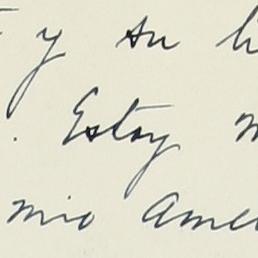 y su
. Estoy
mio Ame